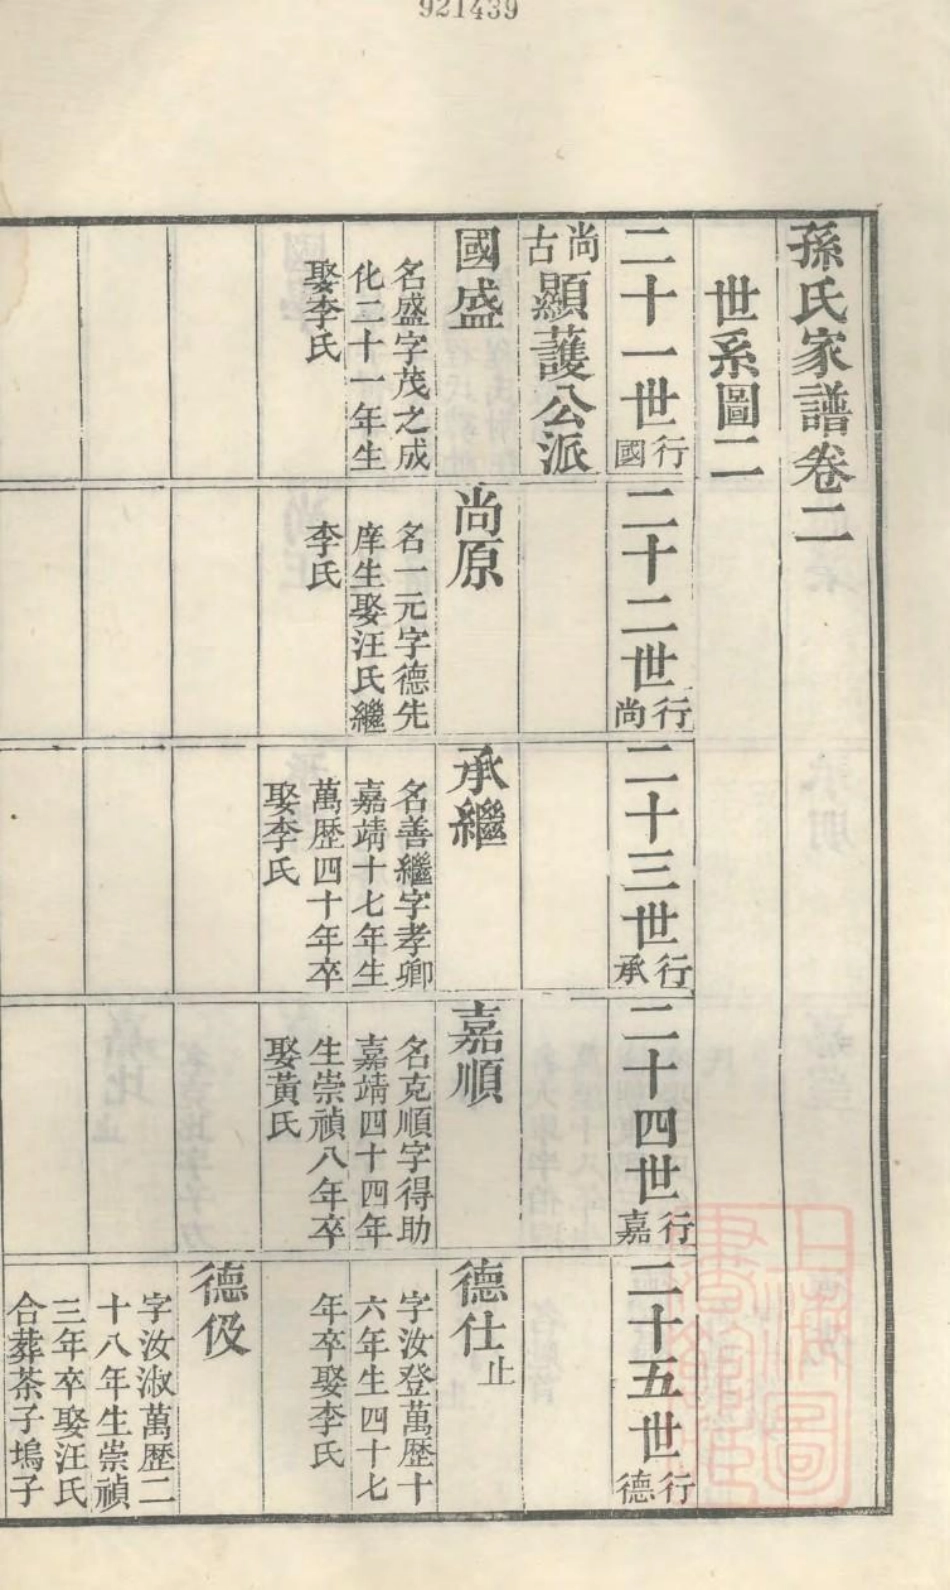 921439
孫氏家譜卷二
世系圖二
二十一世
行國
二十二世
行尚
二十三世
行承
二十四世
行嘉
二十五世
行德
尚古顯護公派
國盛
名盛字茂之成
化二十一年生
娶李氏
尚原
名一元字德先
庠生娶汪氏繼
李氏
承繼
名善繼字孝卿
嘉靖十七年生
萬歷四十年卒
娶李氏
嘉順
名克順字得助
嘉靖四十四年
生崇禎八年卒
娶黃氏
德仕止
字汝登萬歷十
六年生四十七
年卒娶李氏
德伋
字汝淑萬歷二
十八年生崇禎
三年卒娶汪氏
合葬茶子塢子